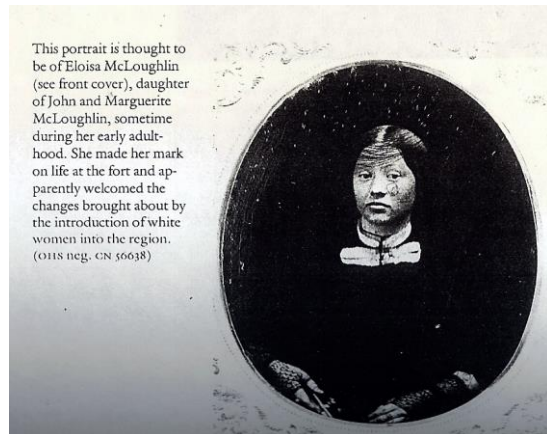 This portrait is thought to
be of Eloisa McLoughlin
(see front cover), daughter
of John and Marguerite
McLoughlin, sometime
during her early adult-
hood. She made her mark
on life at the fort and ap-
parently welcomed the
changes brought about by
the introduction of white
women into the region.
(OHS neg. CN 56638)